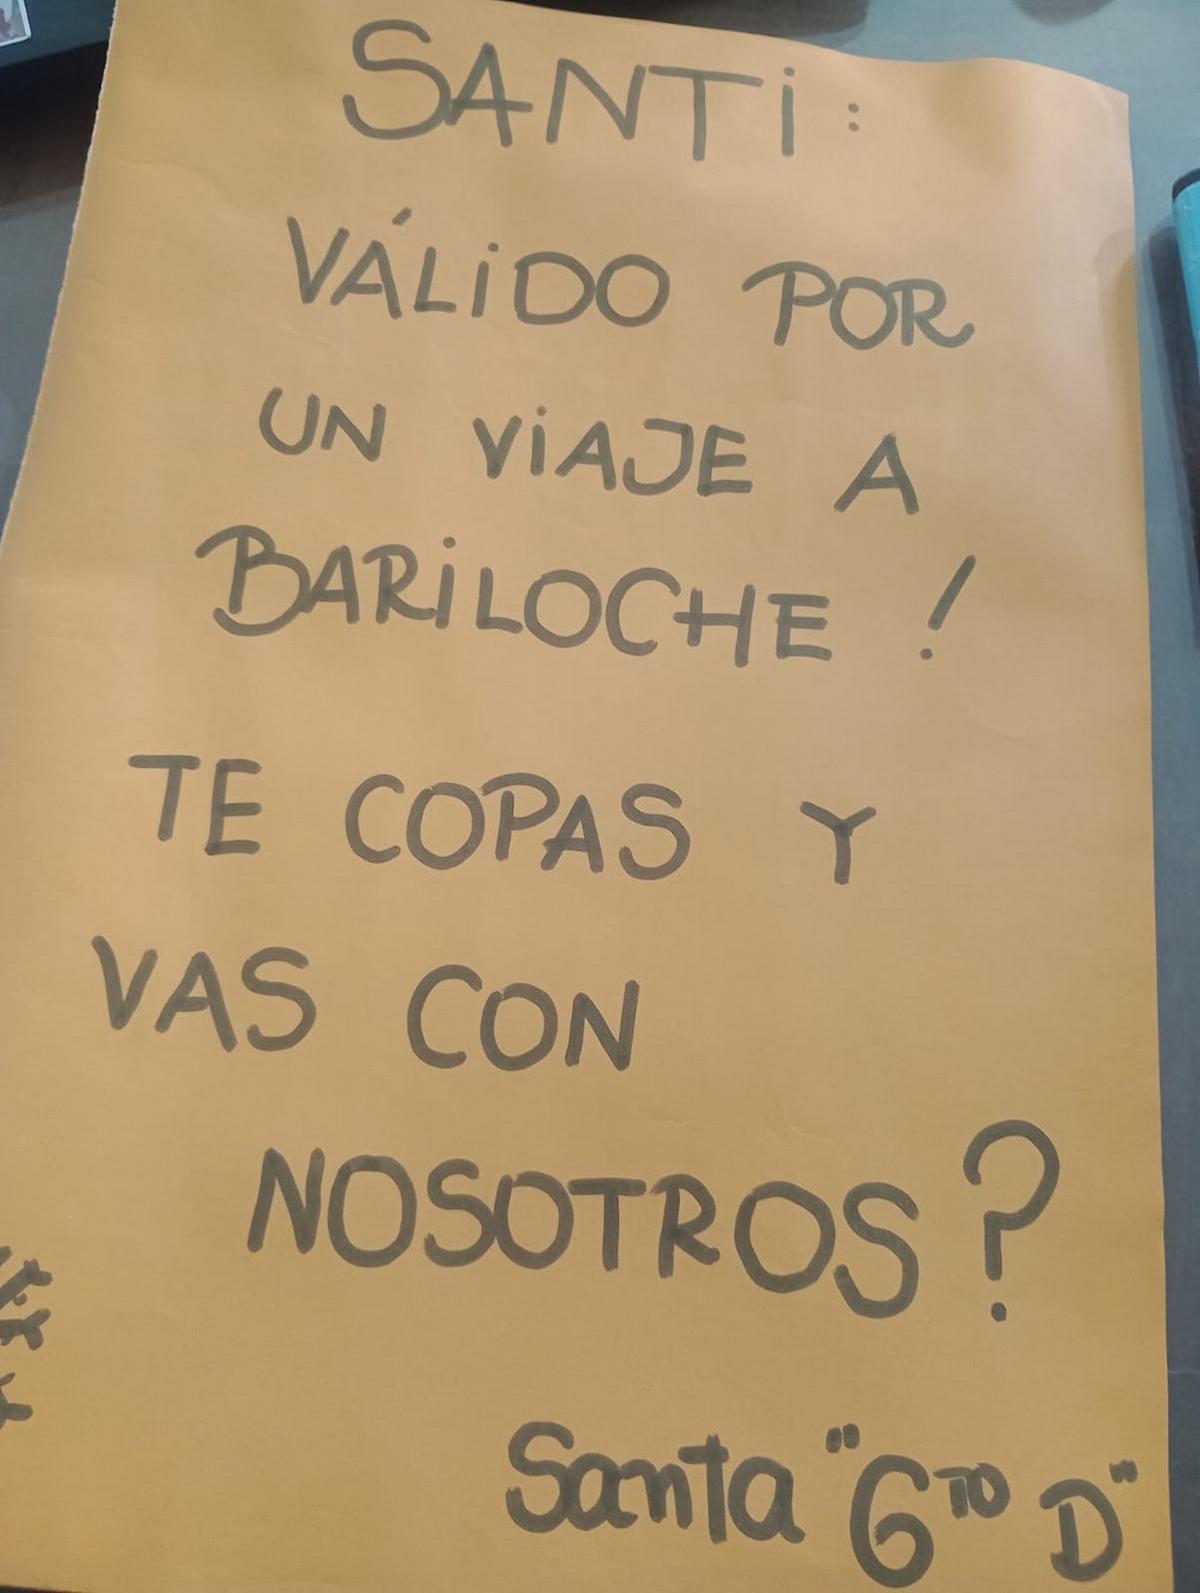 SANTi:
VÁLiDO POR
UN ViAJE A
BARiLOCHE!
TE COPAS Y
VAS CON
NOSOTROS?
Santa "6TO D"